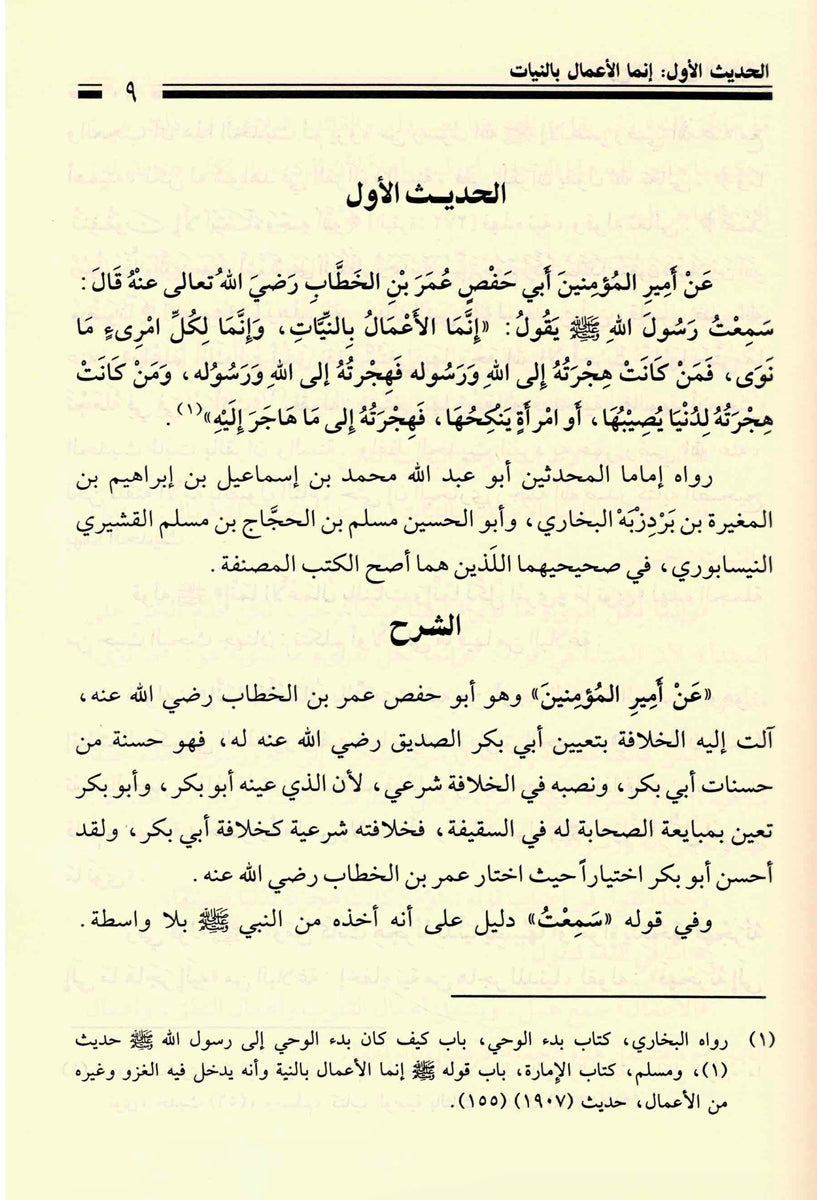 الحديث الأول: إنما الأعمال بالنيات
٩
الحديث الأول
عَنْ أَمِيرِ المُؤمِنينَ أَبي حَفْصٍ عُمَرَ بْنِ الخَطَّابِ رَضيَ اللهُ تعالى عنْهُ قَالَ:
سَمِعْتُ رَسُولَ اللهِ ﷺ يَقُولُ: «إِنَّمَا الأَعْمَالُ بِالنِّيَّاتِ، وَإِنَّمَا لِكُلِّ امْرِىءٍ مَا
نَوَى، فَمَنْ كَانَتْ هِجْرَتُهُ إِلى اللهِ وَرَسُوله فَهِجْرتُهُ إلى اللهِ وَرَسُوُله، وَمَنْ كَانَتْ
هِجْرَتُهُ لِدُنْيَا يُصِيْبُهَا، أَو امْرأَةٍ يَنْكِحُهَا، فَهِجْرَتُهُ إِلى مَا هَاجَرَ إِلَيْهِ»(١).
رواه إماما المحدثين أبو عبد الله محمد بن إسماعيل بن إبراهيم بن
المغيرة بن بَرْدِزْبَهْ البخاري، وأبو الحسين مسلم بن الحجَّاج بن مسلم القشيري
النيسابوري، في صحيحيهما اللَذين هما أصح الكتب المصنفة.
الشرح
«عَنْ أَمِيرِ المُؤمِنينَ» وهو أبو حفص عمر بن الخطاب رضي الله عنه،
آلت إليه الخلافة بتعيين أبي بكر الصديق رضي الله عنه له، فهو حسنة من
حسنات أبي بكر، ونصبه في الخلافة شرعي، لأن الذي عينه أبو بكر، وأبو بكر
تعين بمبايعة الصحابة له في السقيفة، فخلافته شرعية كخلافة أبي بكر، ولقد
أحسن أبو بكر اختياراً حيث اختار عمر بن الخطاب رضي الله عنه.
وفي قوله «سَمِعْتُ» دليل على أنه أخذه من النبي ﷺ بلا واسطة.
(١) رواه البخاري، كتاب بدء الوحي، باب كيف كان بدء الوحي إلى رسول الله ﷺ حديث
(١)، ومسلم، كتاب الإمارة، باب قوله ﷺ إنما الأعمال بالنية وأنه يدخل فيه الغزو وغيره
من الأعمال، حديث (١٩٠٧) (١٥٥).